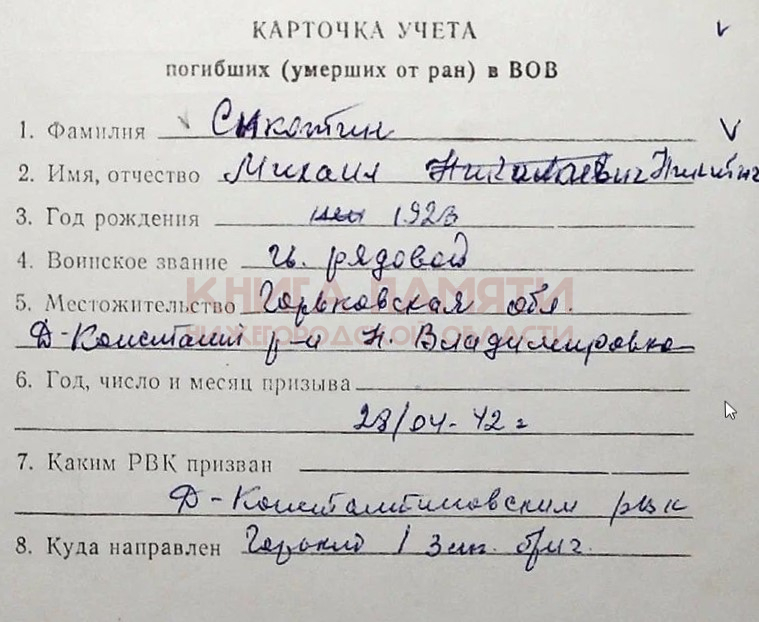 КАРТОЧКА УЧЕТА
погибших (умерших от ран) в ВОВ
1. Фамилия Сыкотин
2. Имя, отчество Михаил Николаевич Никитич
3. Год рождения 1923
4. Воинское звание гв. рядовой
5. Местожительство Горьковская обл.
КНИГА ПАМЯТИ
НИЖЕГОРОДСКОЙ ОБЛАСТИ
Д-Констант р-н Н. Владимировка
6. Год, число и месяц призыва
28/04-42 г
7. Каким РВК призван
Д-Константиновским рвк
8. Куда направлен Горький 1 Зап. бриг.